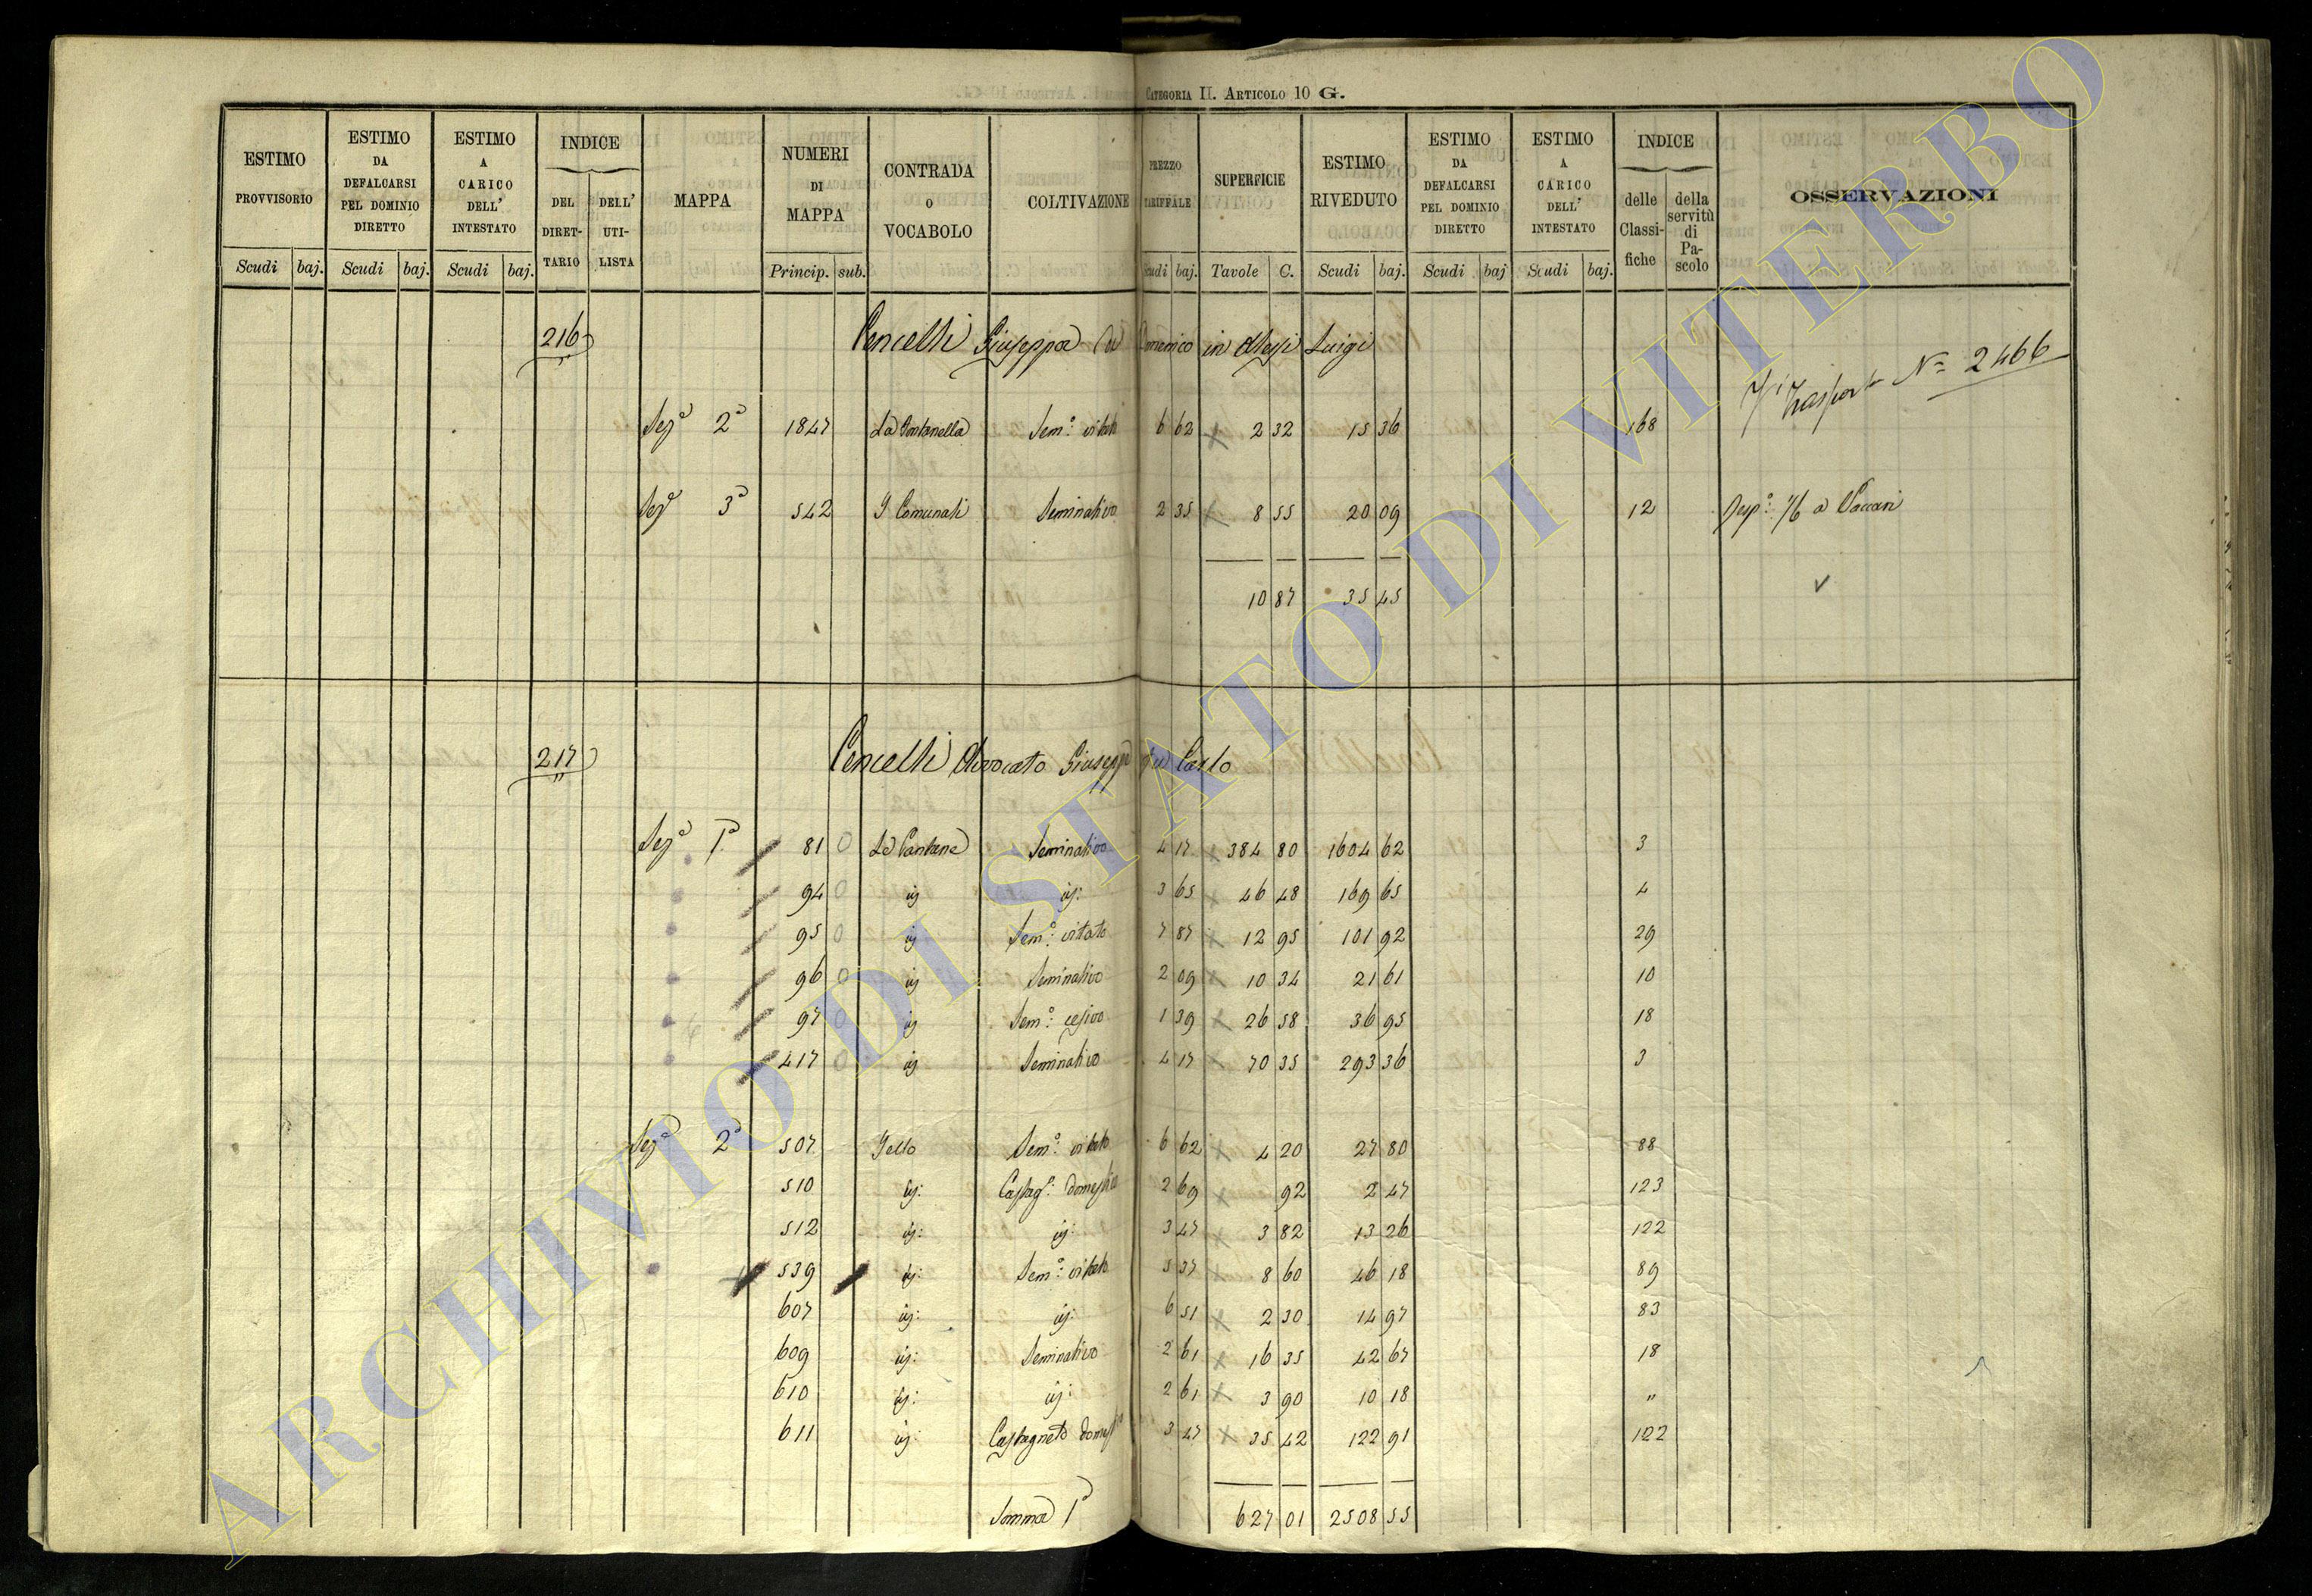 CATEGORIA II. ARTICOLO 10 G.
ESTIMO PROVVISORIO Scudi baj.
ESTIMO DA DEFALCARSI PEL DOMINIO DIRETTO Scudi baj.
ESTIMO A CARICO DELL' INTESTATO Scudi baj.
INDICE DEL DIRET-TARIO DELL' UTI-LISTA
MAPPA
NUMERI DI MAPPA Princip. sub.
CONTRADA O VOCABOLO
COLTIVAZIONE
PREZZO TARIFFALE Scudi baj.
SUPERFICIE Tavole C.
ESTIMO RIVEDUTO Scudi baj.
ESTIMO DA DEFALCARSI PEL DOMINIO DIRETTO Scudi baj
ESTIMO A CARICO DELL' INTESTATO Scudi baj.
INDICE delle Classi-fiche della servitù di Pa-scolo
OSSERVAZIONI
216 Cencelli Giuseppa di Domenico in Luigi
Trasporto N. 2466
Sez.a 2a 1847 La Fontanella Sem.o vitato 6 62 2 32 15 36 168
Sez.a 3a 542 I Comunali Seminativo 2 35 8 55 20 09 12 Resp.o 1/6 a Vaccari
10 87 35 45
217 Cencelli Avvocato Giuseppe fu Carlo
Sez.a 1a 81 Le Pantane Seminativo 4 17 384 80 1604 62 3
94 ij ij: 3 65 46 48 169 65 4
95 ij Sem.o vitato 7 87 12 95 101 92 29
96 ij Seminativo 2 09 10 34 21 61 10
97 ij Sem.o cesivo 1 39 26 58 36 95 18
417 ij Seminativo 4 17 70 35 293 36 3
Sez.a 2a 507 Jello Sem.o vitato 6 62 4 20 27 80 88
510 ij: Castag.o domestico 2 69 92 2 47 123
512 ij: ij: 3 47 3 82 13 26 122
539 ij: Sem.o vitato 5 37 8 60 46 18 89
607 ij: ij: 6 51 2 30 14 97 83
609 ij: Seminativo 2 61 16 35 42 67 18
610 ij: ij: 2 61 3 90 10 18 "
611 ij: Castagneto domest.o 3 47 35 42 122 91 122
Somma 1a 627 01 2508 55
ARCHIVIO DI STATO DI VITERBO